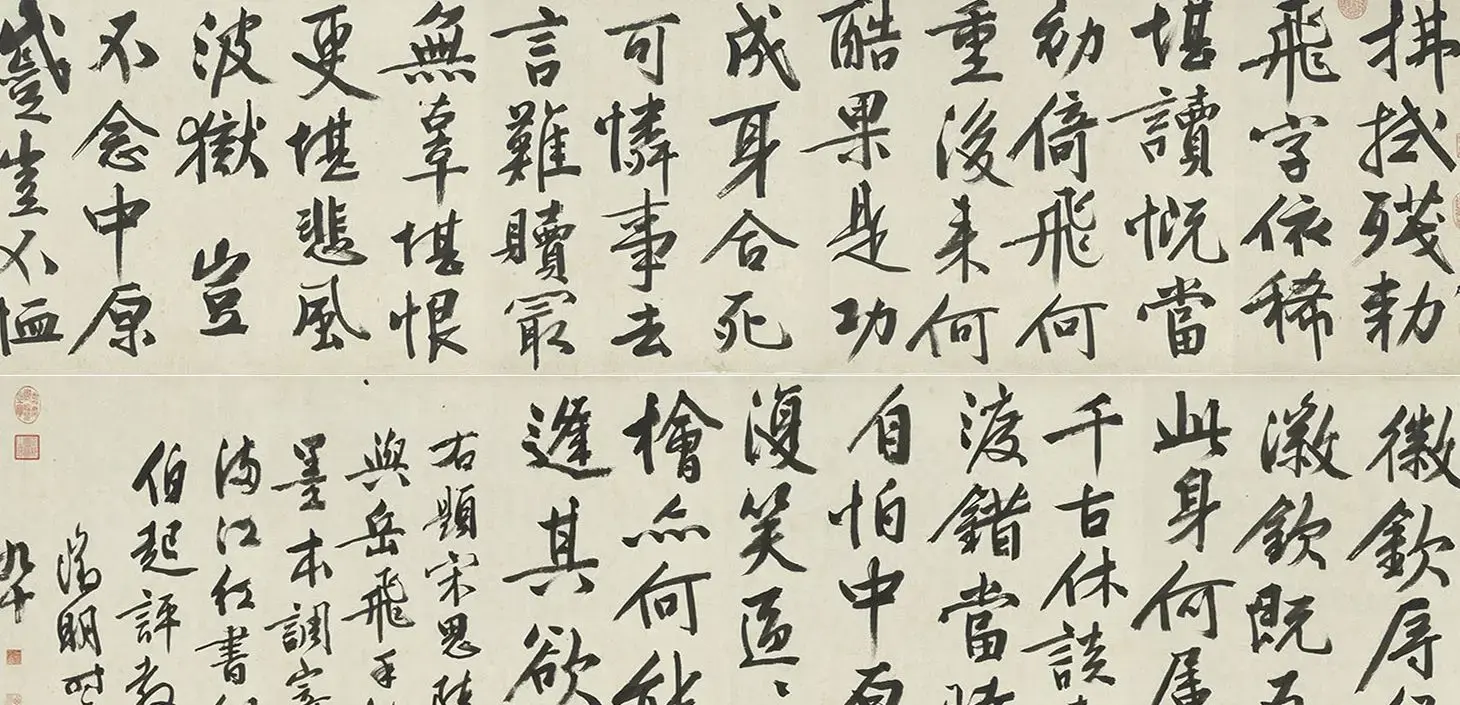 拂拭殘勅
飛字依稀
堪讀慨當
初倚飛何
重後来何
酷果是功
成身合死
可憐事去
言難贖冣
無辜堪恨
更堪悲風
波獄豈
不念中原
蹙豈不恤
徽欽辱
徽欽既
此身何屬
千古休談
渡錯當
自怕中原
復笑區〻
檜亦何能
逢其欲
右題宋思陵
與岳飛手
墨本調寄
滿江紅書
伯起評教
徵明時
九十